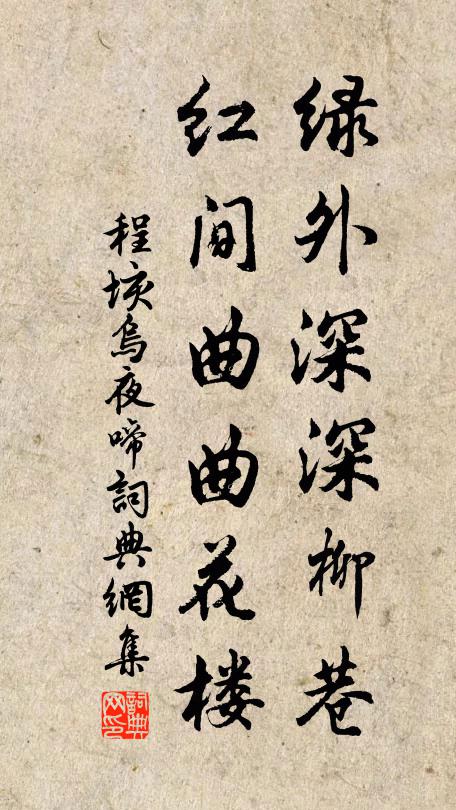 绿外深深柳巷
红间曲曲花楼
程垓乌夜啼词典網集
詞典网印